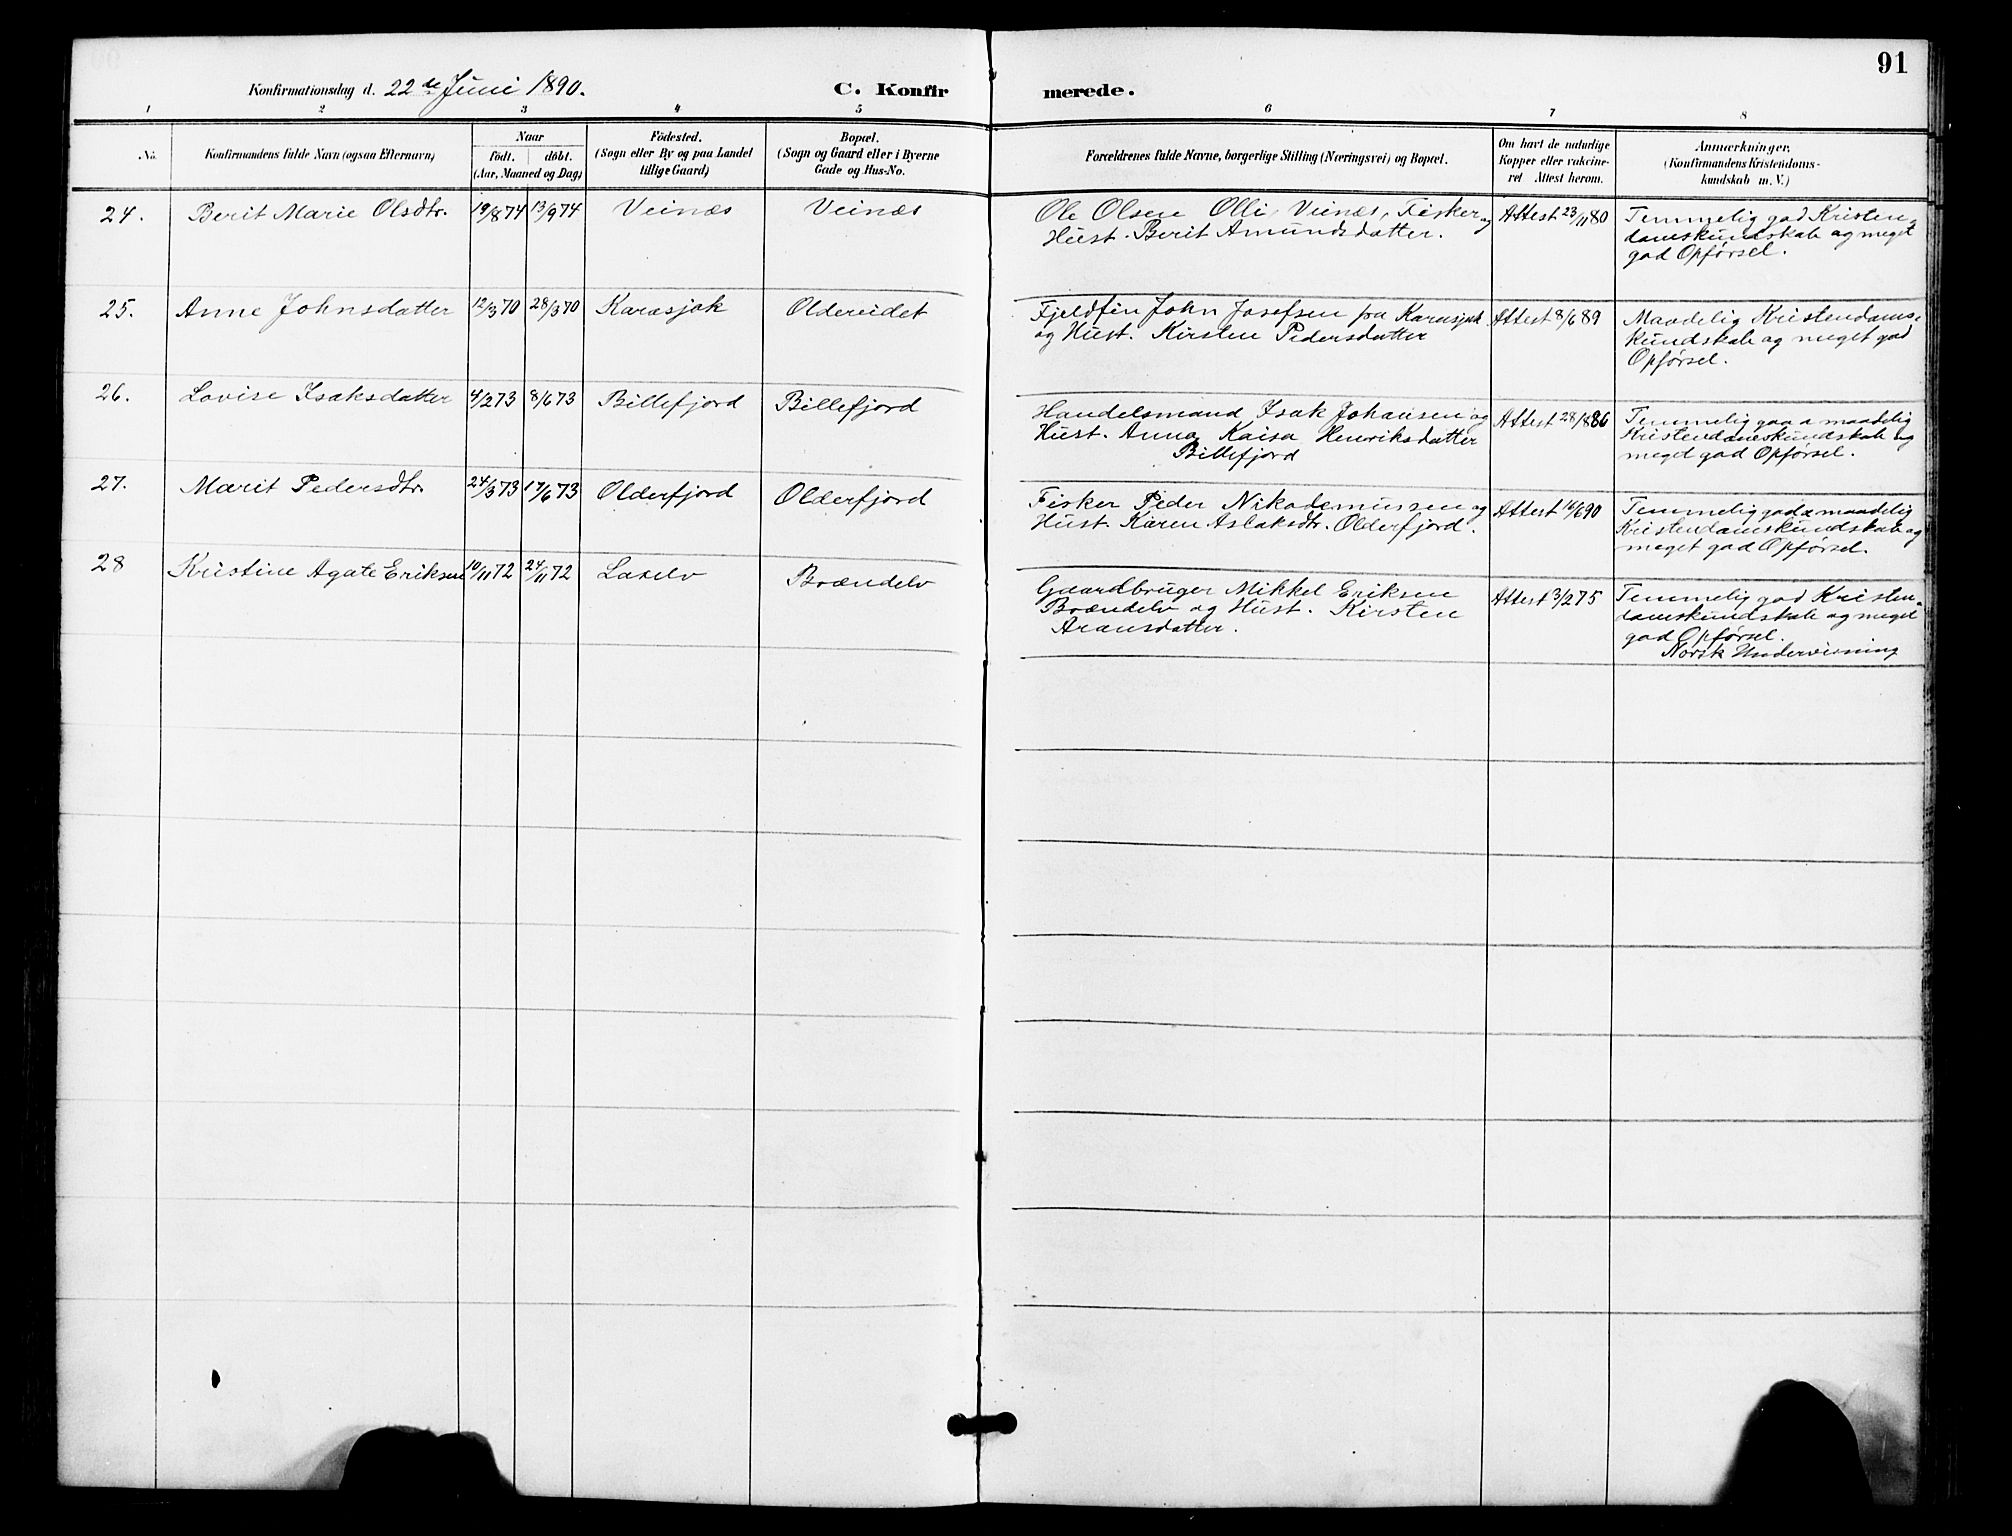 91
Konfirmationsdag d. 22de Juni 1890.
C. Konfirmerede.
1 2 3 4 5 6 7 8
No.
Konfirmandens fulde Navn (ogsaa Efternavn)
Naar
födt. döbt.
(Aar, Maaned og Dag)
Födested.
(Sogn eller By og paa Landet
tillige Gaard)
Bopæl.
(Sogn og Gaard eller i Byerne
Gade og Hus-No.
Forældrenes fulde Navne, borgerlige Stilling (Næringsvei) og Bopæl.
Om havt de naturlige
Kopper eller vakcine-
ret Attest herom.
Anmærkninger.
(Konfirmandens Kristendoms-
kundskab m. V.)
24. Berit Marie Olsdtr. 19/8 74 13/9 74 Veinæs Veinæs
Ole Olsen Olli, Veinæs, Fisker og
Hust. Berit Amundsdatter.
Attest 23/11 80
Temmelig god Kristen-
domskundskab og meget
god Opførsel.
25. Anne Johnsdatter 12/3 70 28/3 70 Karasjok Oldereidet
Fjeldfin John Josefsen fra Karasjok
og Hust. Kirsten Pedersdatter
Attest 8/6 89
Maadelig Kristendoms-
kundskab og meget god
Opførsel.
26. Lovise Isaksdatter 4/2 73 8/6 73 Billefjord Billefjord
Handelsmand Isak Johansen og
Hust. Anna Kaisa Henriksdatter
Billefjord
Attest 28/8 86
Temmelig god a maadelig
Kristendomskundskab og
meget god Opførsel.
27. Marit Pedersdtr. 24/3 73 17/6 73 Olderfjord Olderfjord
Fisker Peder Nikodemussen og
Hust. Karen Aslaksdtr. Olderfjord.
Attest 16/6 90
Temmelig god a maadelig
Kristendomskundskab og
meget god Opførsel.
28 Kristine Agate Eriksen 10/11 72 24/11 72 Laxelv Brændelv
Gaardbruger Mikkel Eriksen
Brændelv og Hust. Kirsten
Aronsdatter.
Attest 3/2 75
Temmelig god Kristen-
domskundskab og meget
god Opførsel.
Norsk Undervisning